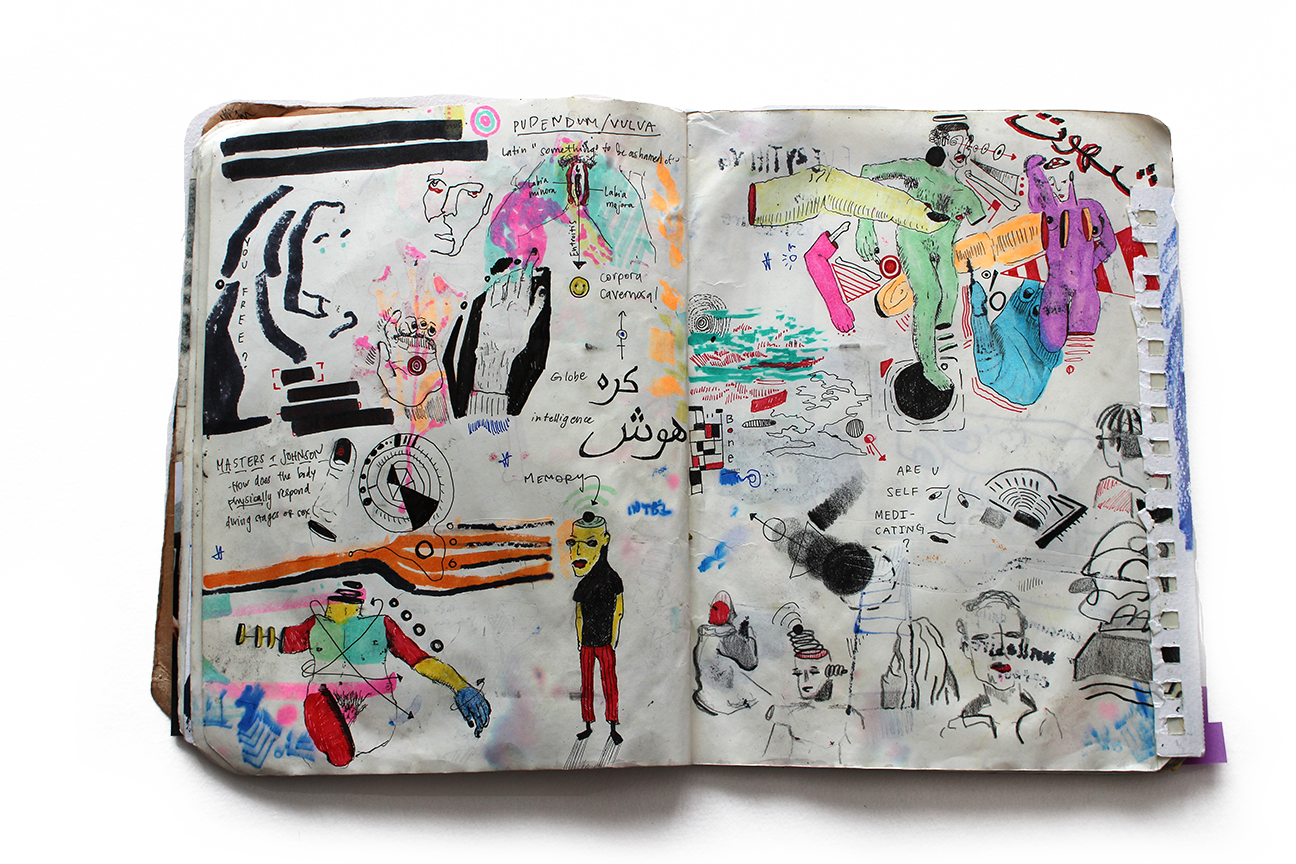 PUDENDUM/VULVA
Latin "something" to be ashamed of
Labia
minora
Labia
majora
corpora
cavernosa!
YOU FREE?
Globe
کره
intelligence
هوش
MASTERS & JOHNSON
- How does the body
physically respond
during stages of sex
MEMORY
شهوت
Bone
ARE U
SELF
MEDI-
CATING
?